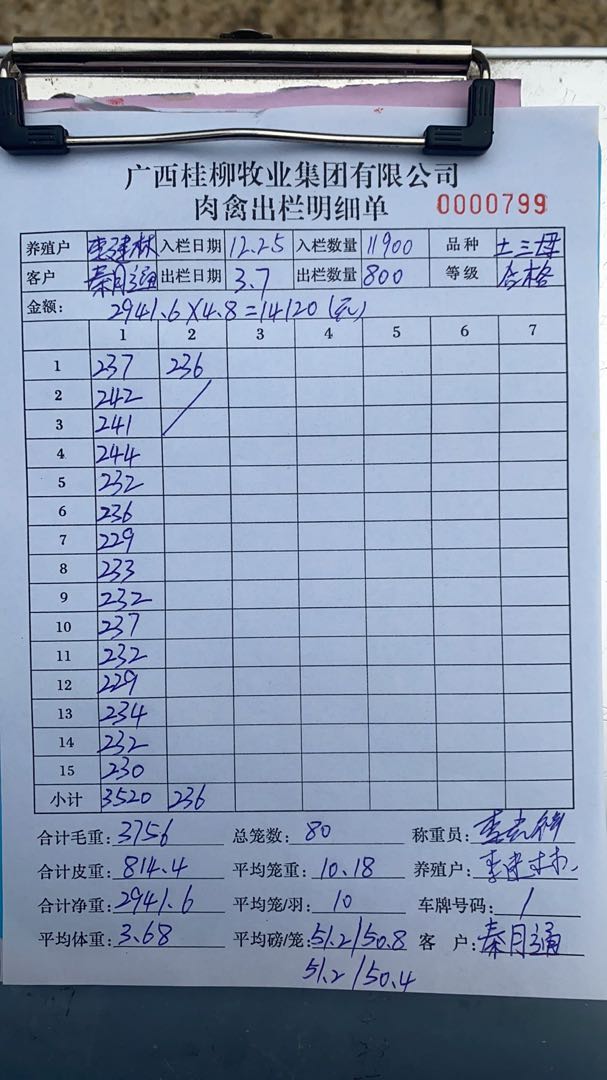 广西桂柳牧业集团有限公司
肉禽出栏明细单 0000799
养殖户 李建林 入栏日期 12.25 入栏数量 11900 品种 土三母
客户 秦月通 出栏日期 3.7 出栏数量 800 等级 合格
金额: 2941.6×4.8=14120(元)
1 2 3 4 5 6 7
1 237 236
2 242
3 241
4 244
5 232
6 236
7 229
8 233
9 232
10 237
11 232
12 229
13 234
14 232
15 230
小计 3520 236
合计毛重: 3756 总笼数: 80 称重员:
合计皮重: 814.4 平均笼重: 10.18 养殖户: 李建林
合计净重: 2941.6 平均笼/羽: 10 车牌号码: /
平均体重: 3.68 平均磅/笼: 51.2/50.8 客户: 秦月通
51.2/50.4